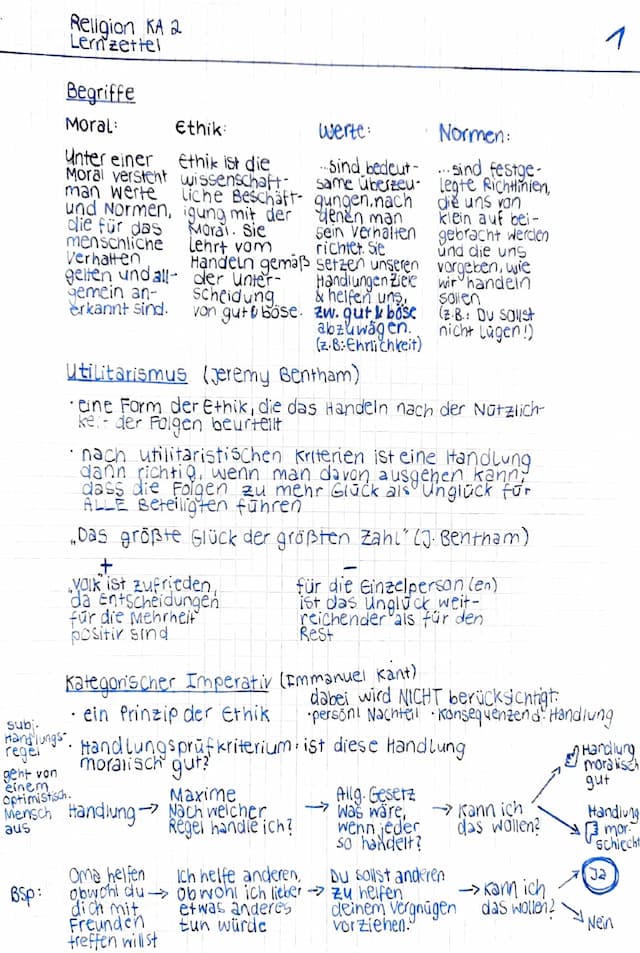 Religion KA 2
Lernzettel
1
Begriffe
Moral:
Unter einer
Moral versteht
man Werte
und Normen,
die für das
menschliche
Verhalten
gelten und all-
gemein an-
erkannt sind.
Ethik:
Ethik ist die
wissenschaft-
liche Beschäft-
igung mit der
Moral. Sie
lehrt vom
Handeln gemäß
der Unter-
scheidung
von gut & böse.
Werte:
...sind bedeut-
same Überzeu-
gungen, nach
denen man
sein Verhalten
richtet. Sie
setzen unseren
Handlungen Ziele
& helfen uns,
zw. gut & böse
abzuwägen.
(z.B.: Ehrlichkeit)
Normen:
...sind festge-
legte Richtlinien,
die uns von
klein auf bei-
gebracht werden
und die uns
vorgeben, wie
wir handeln
sollen
(z.B.: Du sollst
nicht lügen!)
Utilitarismus (Jeremy Bentham)
· eine Form der Ethik, die das Handeln nach der Nützlich-
kei- der Folgen beurteilt
· nach utilitaristischen Kriterien ist eine Handlung
dann richtig, wenn man davon ausgehen kann,
dass die Folgen zu mehr Glück als Unglück für
ALLE Beteiligten führen
„Das größte Glück der größten Zahl" (J. Bentham)
+
„Volk" ist zufrieden,
da Entscheidungen
für die Mehrheit
positiv sind
−
für die Einzelperson (en)
ist das Unglück weit-
reichender als für den
Rest
Kategorischer Imperativ (Immanuel Kant)
dabei wird NICHT berücksichtigt:
· persönl Nachteil · Konsequenzen d. Handlung
· ein Prinzip der Ethik
· Handlungsprüfkriterium: ist diese Handlung
moralisch gut?
subj.
Handlungs-
regel
geht von
einem
optimistisch.
Mensch
aus
Handlung →
Maxime
Nach welcher
Regel handle ich?
→ Allg. Gesetz
Was wäre,
wenn jeder
so handelt?
→ Kann ich
das wollen?
Handlung
moralisch
gut
Handlung
mor.
schlecht
Bsp:
Oma helfen
obwohl du →
dich mit
Freunden
treffen willst
Ich helfe anderen,
obwohl ich lieber →
etwas anderes
tun würde
Du sollst anderen
zu helfen
deinem Vergnügen
vorziehen.
→ Kann ich
das wollen?
Ja
Nein